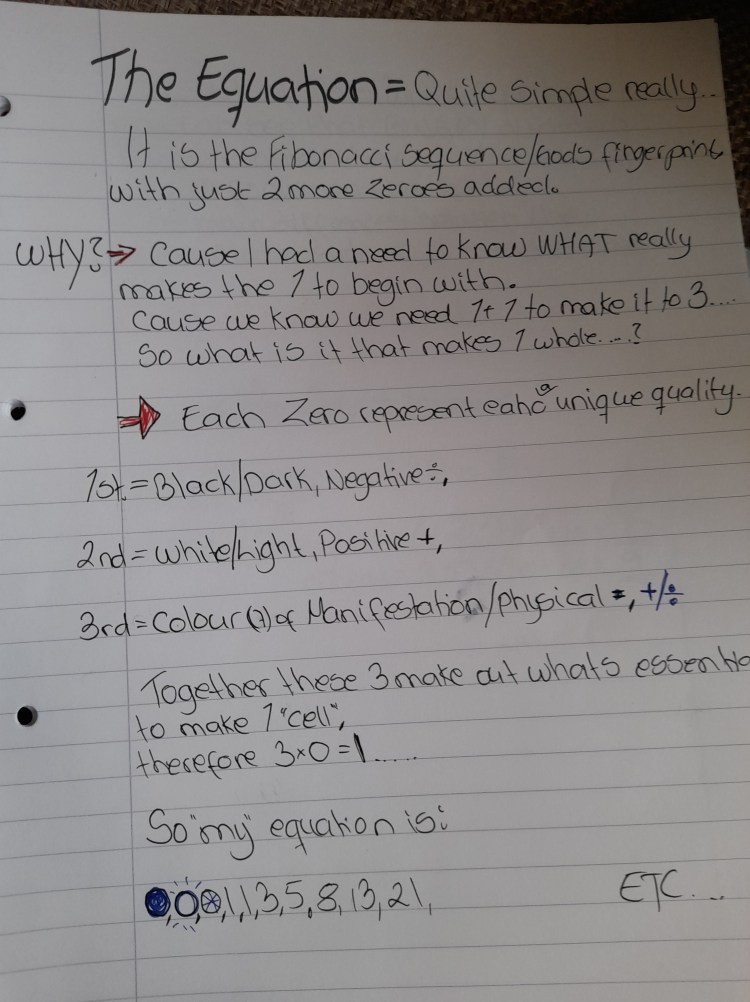 The Equation = Quite simple really..
It is the Fibonacci sequence/Gods fingerprint
with just 2 more zeroes added.
WHY? → Cause I had a need to know WHAT really
makes the 1 to begin with.
Cause we know we need 1+1 to make it to 3....
So what is it that makes 1 whole....?
→ Each Zero represent eahc a unique quality.
1st = Black/Dark, Negative ÷,
2nd = White/Light, Positive +,
3rd = Colour(?) of Manifestation/physical =, +/÷
Together these 3 make out whats essentia
to make 1 "cell",
therefore 3×0=1......
So "my" equation is:
0,0,0,1,1,3,5,8,13,21, ETC...